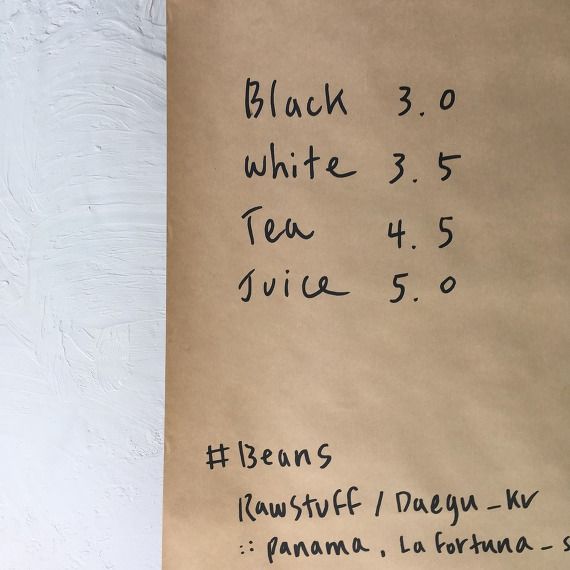 Black 3.0
White 3.5
Tea 4.5
Juice 5.0
#Beans
Rawstuff / Daegu_Kr
:: panama, La Fortuna_s